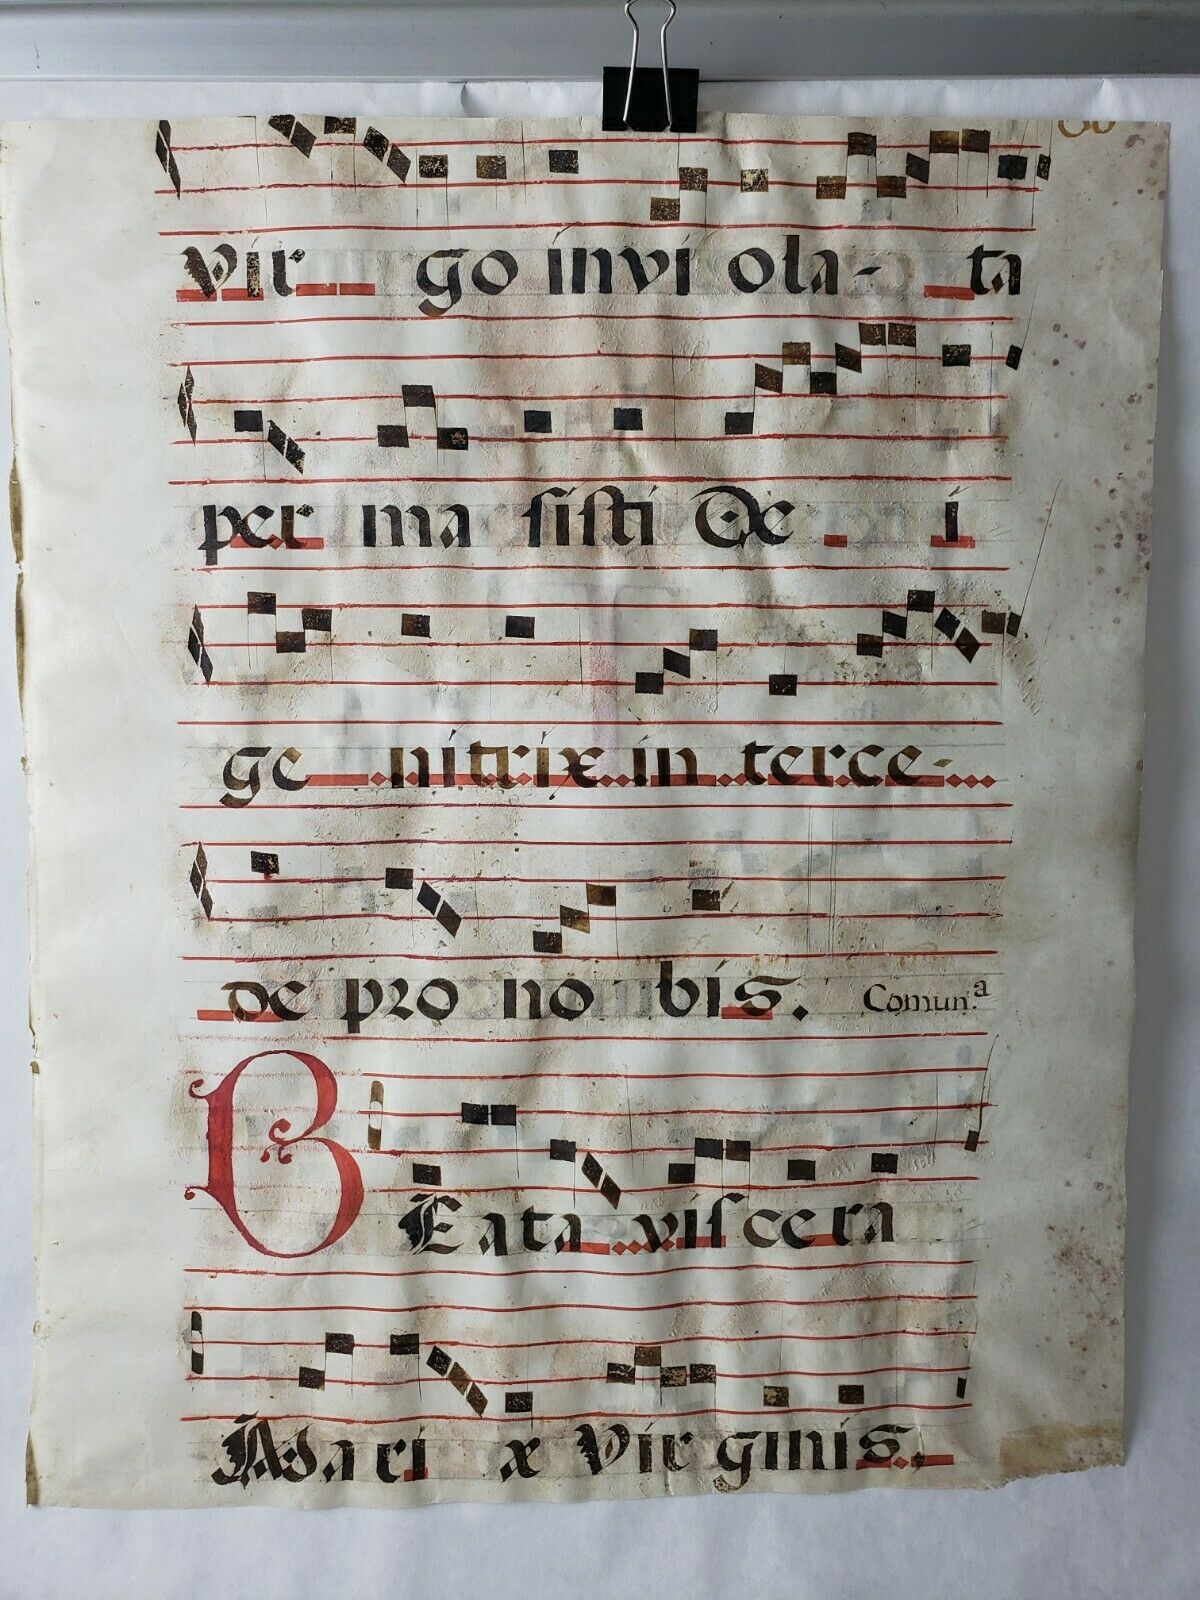 Vir go invi ola- ta
per ma sisti De i
ge nitrix in terce-
de pro no bis. Comun.a
BEata viscera
Mari æ Vir ginis.